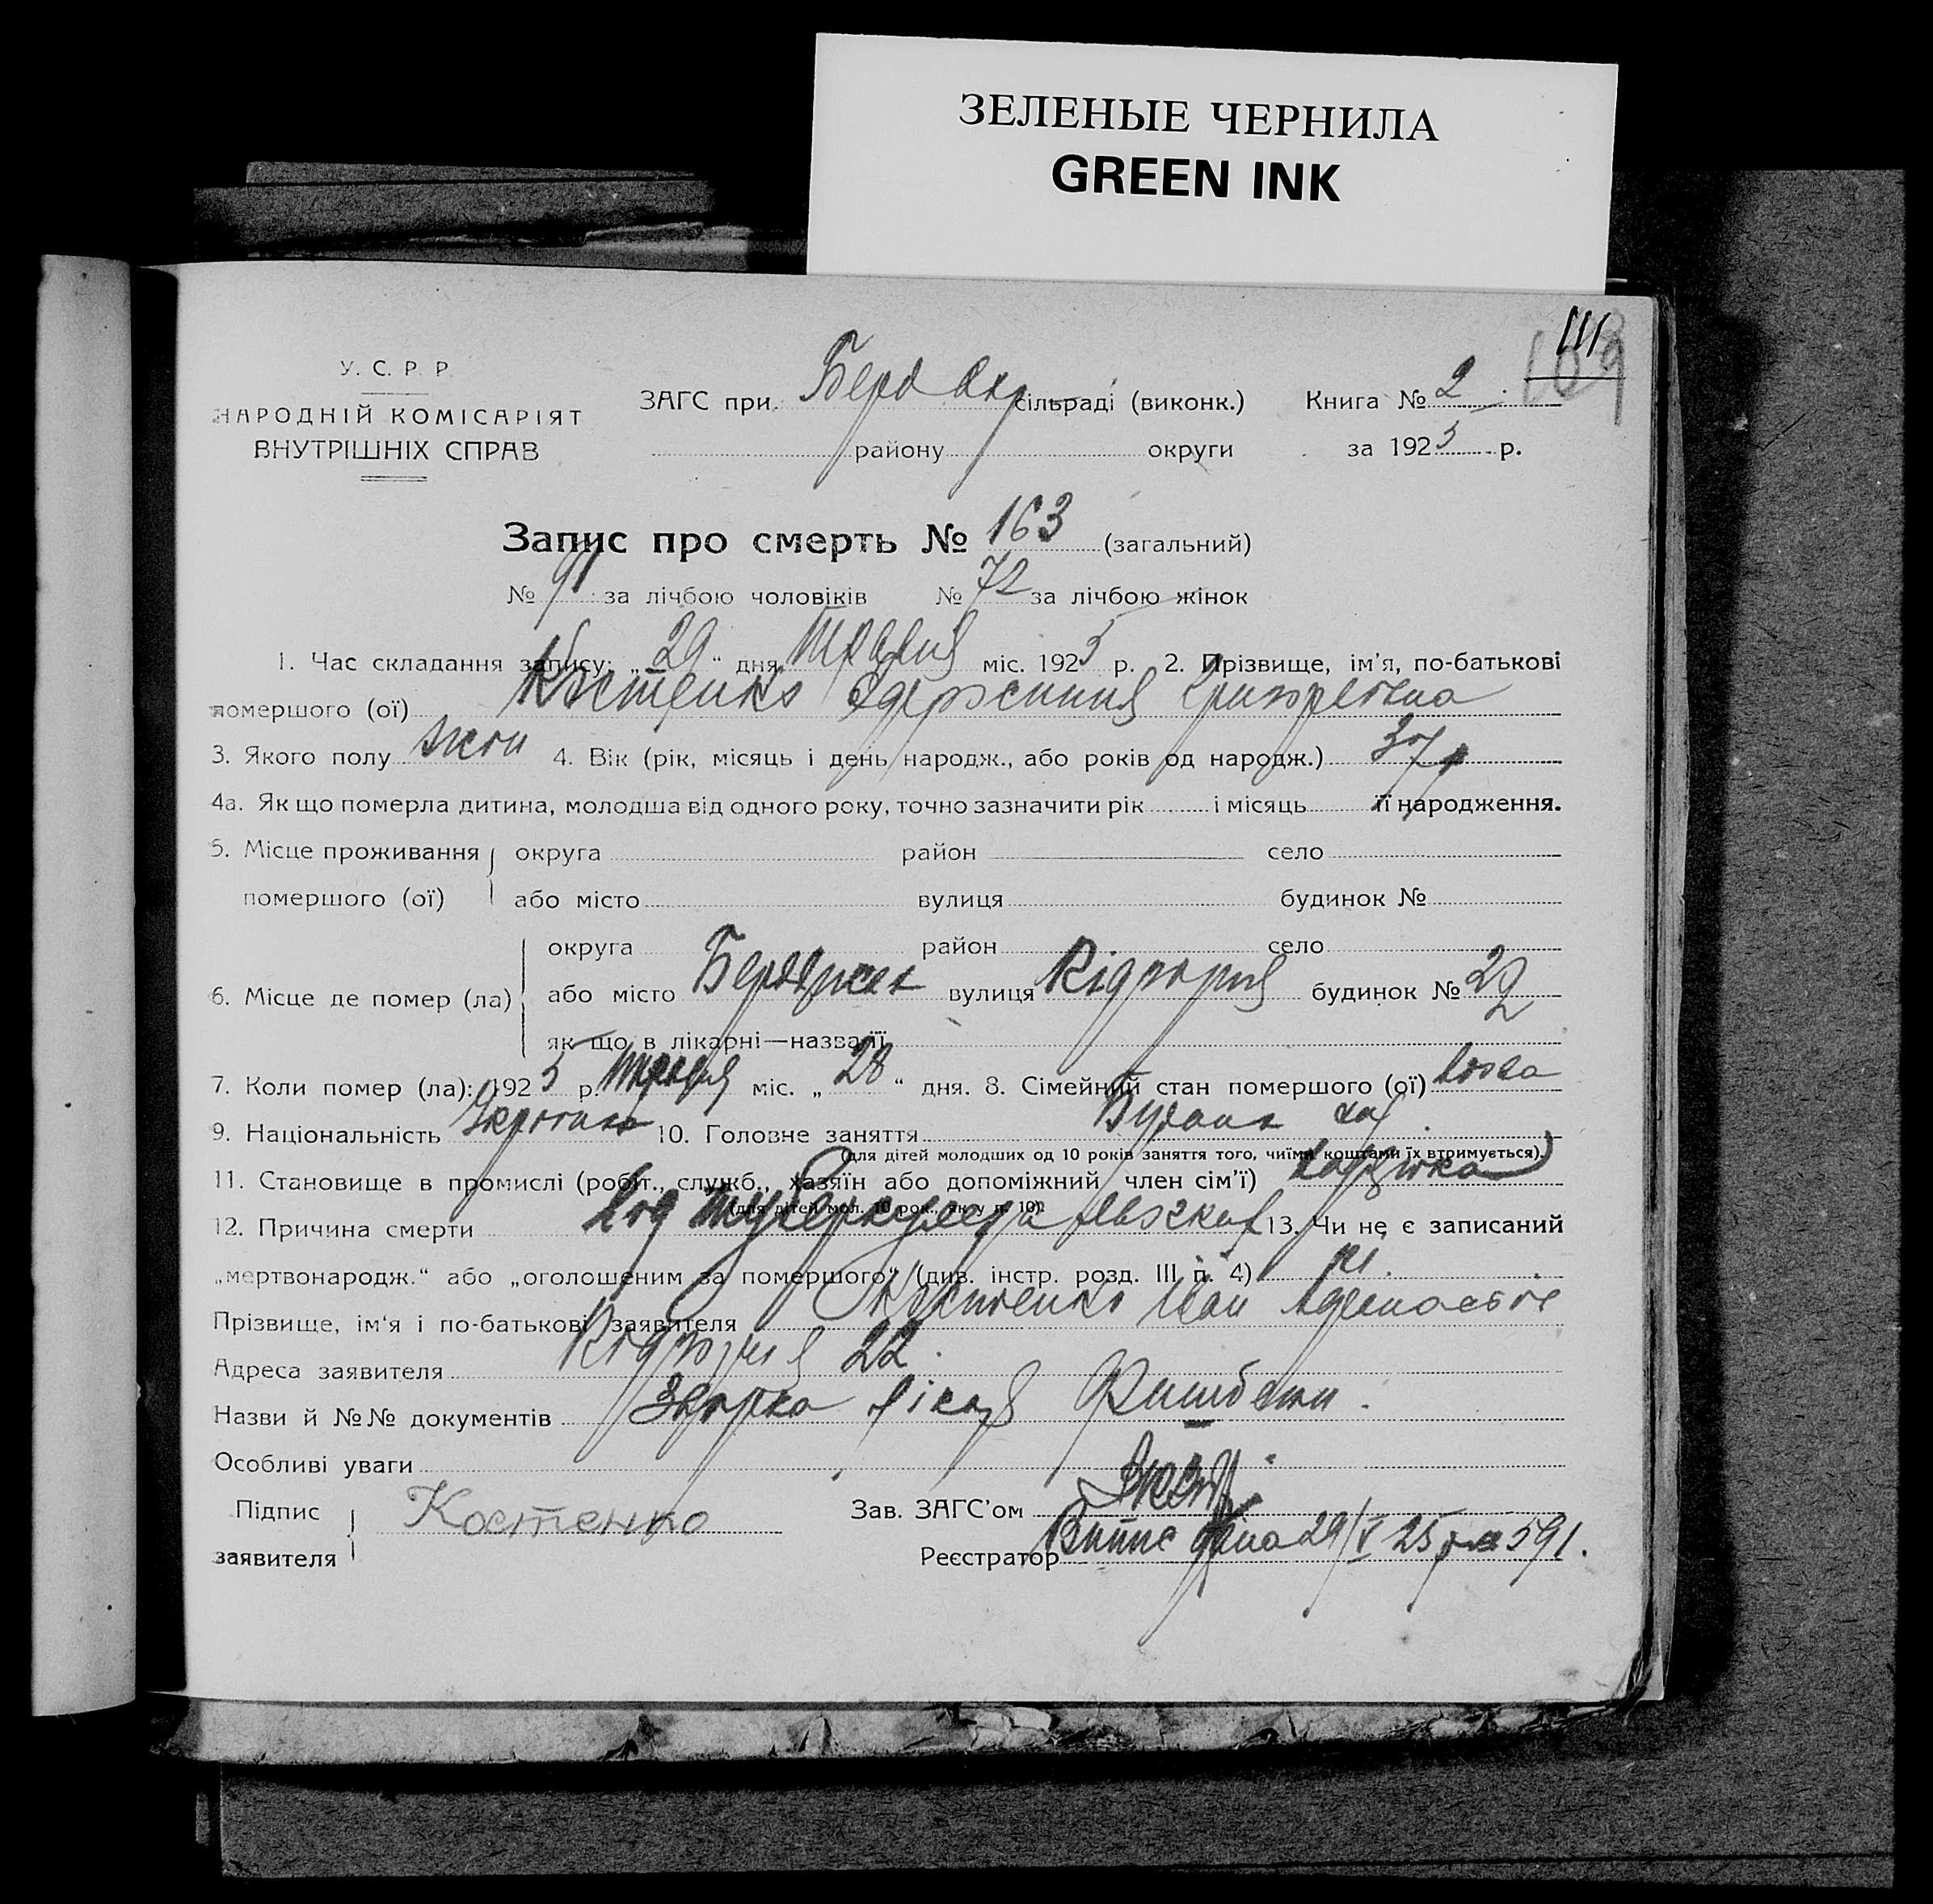 ЗЕЛЕНЫЕ ЧЕРНИЛА
GREEN INK
111
109
У. С. Р. Р.
НАРОДНІЙ КОМІСАРІЯТ
ВНУТРІШНІХ СПРАВ
ЗАГС при Берд Окр сільраді (виконк.) Книга № 2
району округи за 1925 р.
Запис про смерть № 163 (загальний)
№ 91 за лічбою чоловіків № 72 за лічбою жінок
1. Час складання запису: „29“ дня Травня міс. 1925 р. 2. Прізвище, ім'я, по-батькові
помершого (ої) Костенко
3. Якого полу жін 4. Вік (рік, місяць і день народж., або років од народж.) 37 р
4а. Як що померла дитина, молодша від одного року, точно зазначити рік і місяць її народження.
5. Місце проживання округа район село
помершого (ої) або місто вулиця будинок №
округа район село
6. Місце де помер (ла) або місто Бердичев вулиця будинок № 22
як що в лікарні—назва її
7. Коли помер (ла): 1925 р. Травня міс. „28“ дня. 8. Сімейний стан помершого (ої)
9. Національність 10. Головне заняття
(для дітей молодших од 10 років заняття того, чиїми коштами їх втримується).
11. Становище в промислі (робіт., служб., хазяїн або допоміжний член сім'ї)
(для дітей мол. 10 рок., як у п. 10).
12. Причина смерти від туберкульоза 13. Чи не є записаний
„мертвонародж.“ або „оголошеним за помершого“ (див. інстр. розд. III п. 4) ні.
Прізвище, ім'я і по-батькові заявителя Костенко Іван
Адреса заявителя 22.
Назви й №№ документів лікаря
Особливі уваги
Підпис Костенко Зав. ЗАГС'ом
заявителя Реєстратор 29/V 25 р 591.